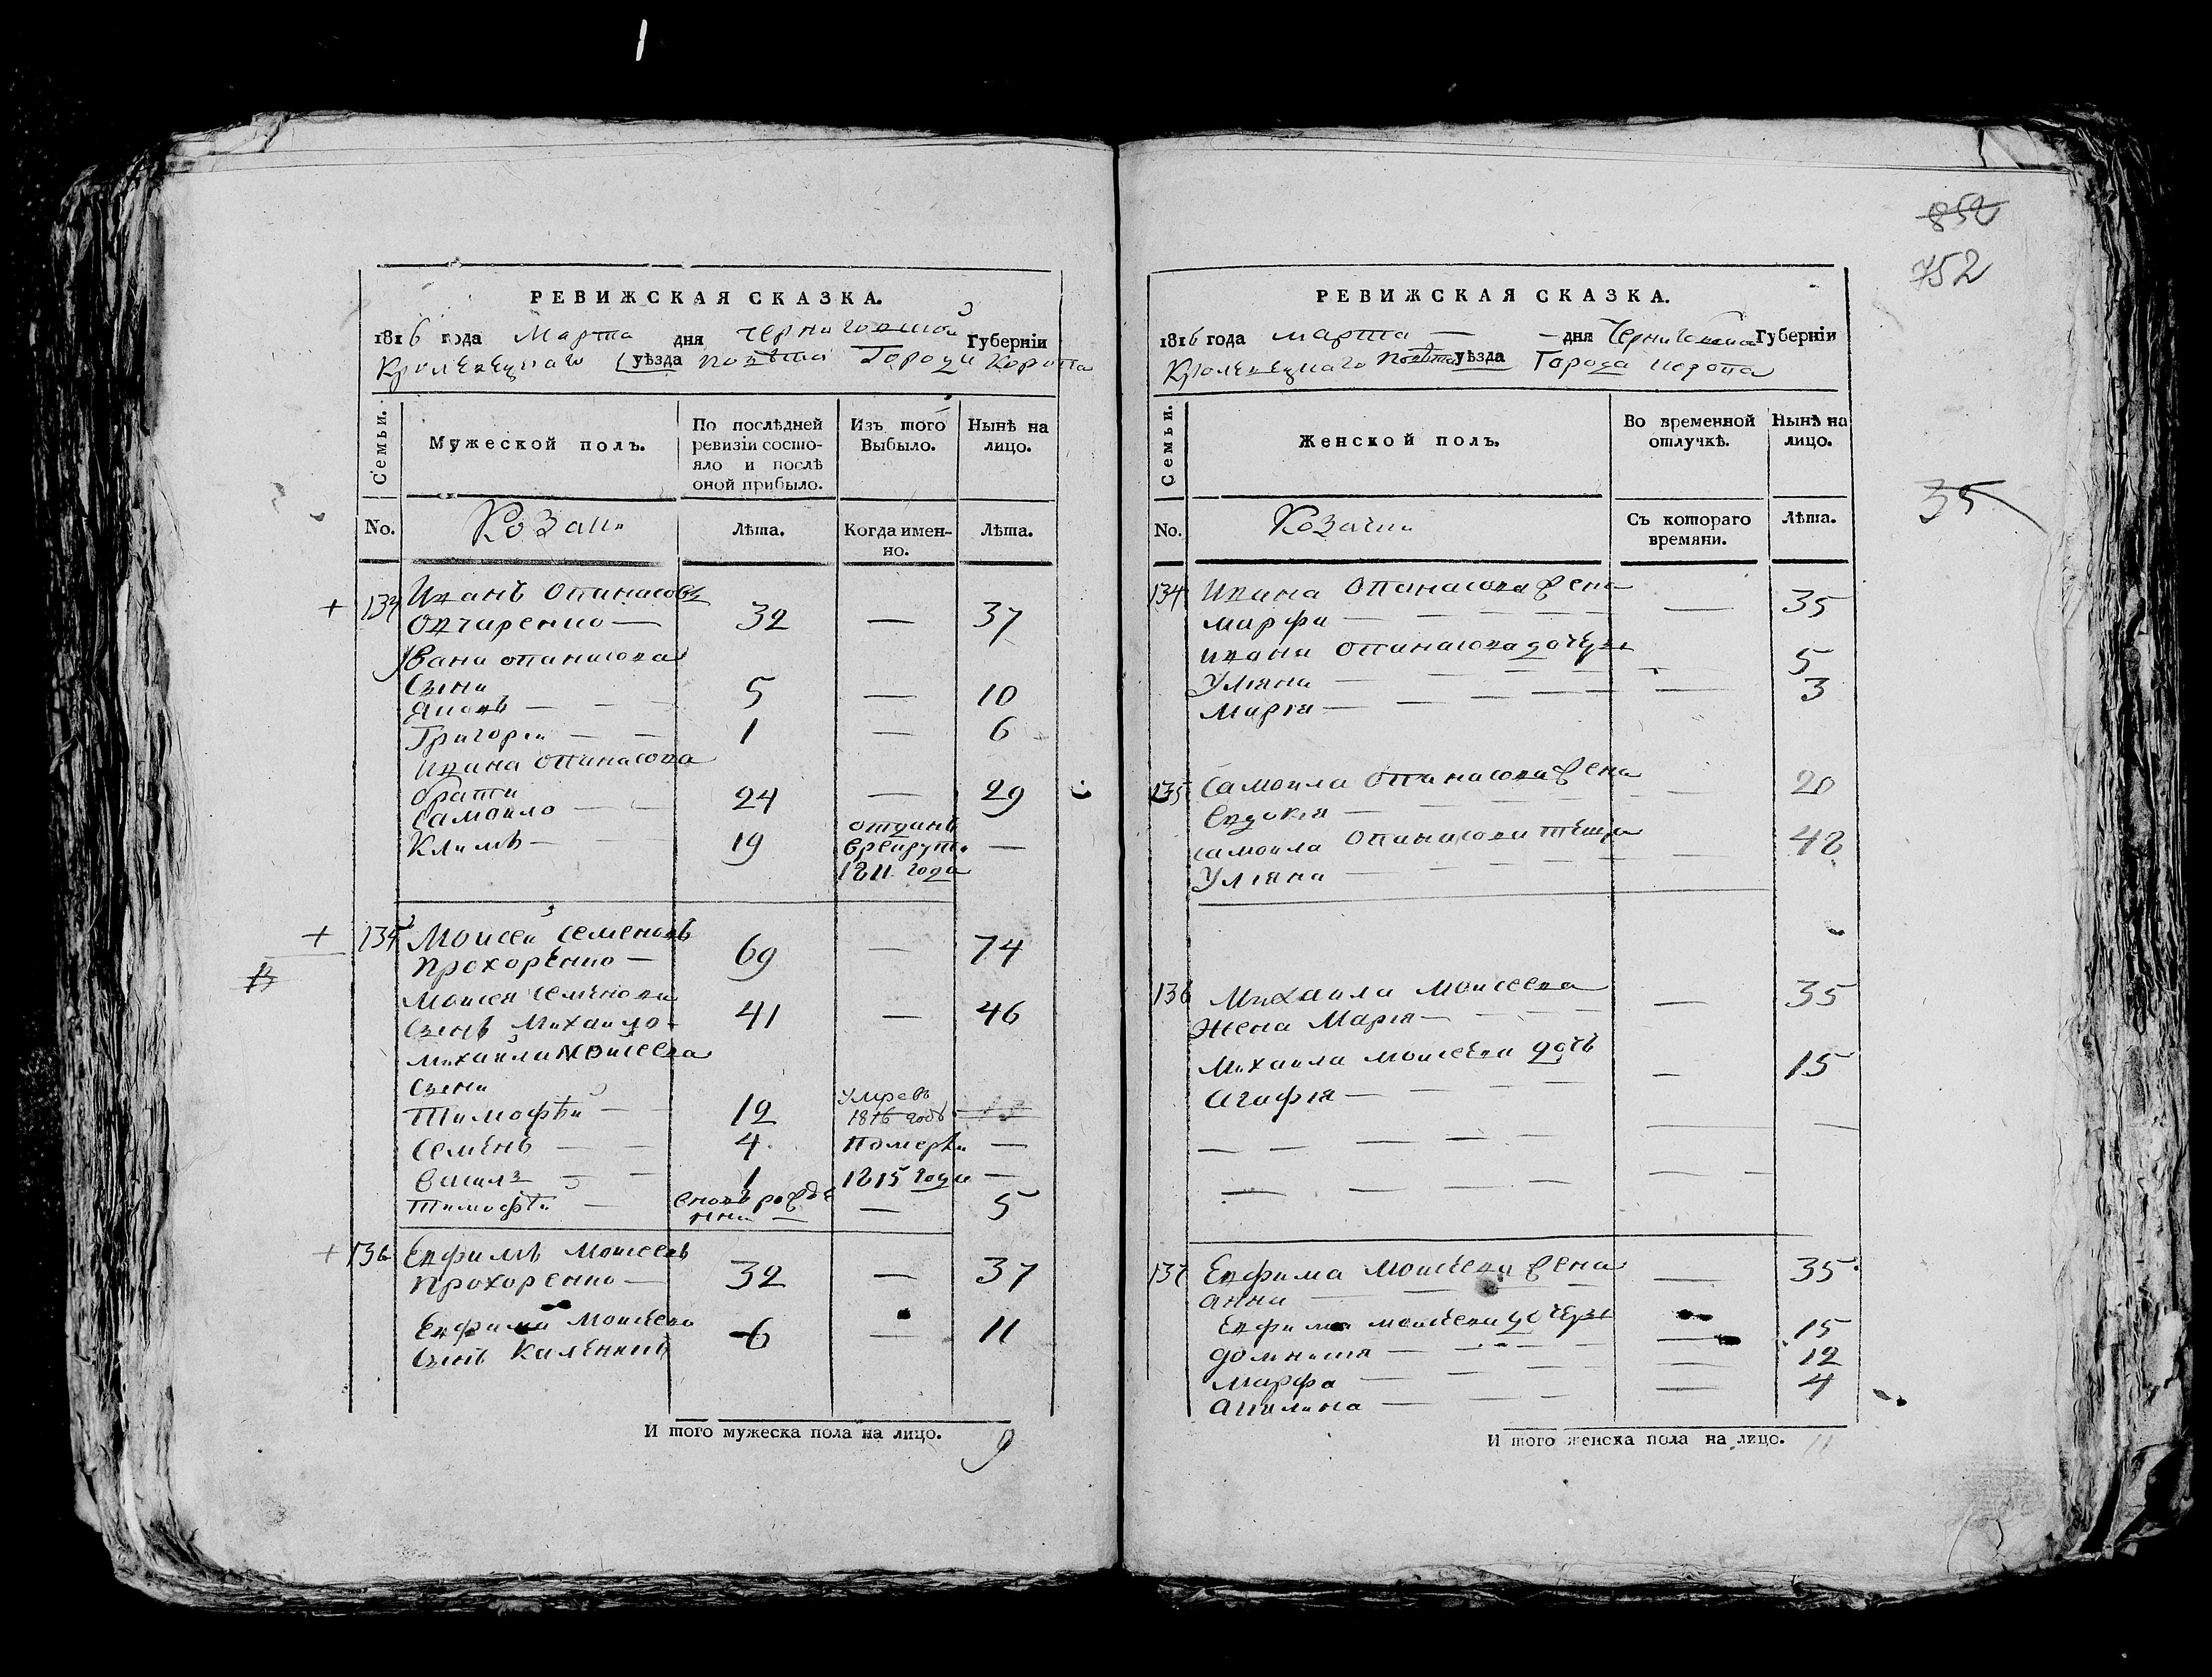 РЕВИЖСКАЯ СКАЗКА.
1816 года Марта дня Черниговской Губернїи
Кролевецкаго уѣзда повѣта Города Коропа
Семьи.
Мужеской полъ.
По послѣдней ревизїи состояло и послѣ оной прибыло.
Изъ того Выбыло.
Нынѣ на лицо.
No.
Козаки
Лѣта.
Когда именно.
Лѣта.
134 Иванъ Опанасовъ
Овчаренко — 32 — 37
Ивана опанасова
Сыни
Яковъ — — 5 — 10
Григорїи — — 1 — 6
Ивана Опанасова
брати
Самоило — — 24 — 29
Климъ — 19 отданъ врекруты 1811 года —
135 Моисей Семеновъ
Прохоренко — 69 — 74
Моисея Семенова
Сынъ Михайло 41 — 46
Михайла Моисеева
Сыни
Тимофѣй — 12 Умре въ 1816 годѣ
Семенъ — — 4 Померли —
Василь — — 1 1815 года —
Тимофѣи — вновь рожденни — — 5
136 Евфимъ Моисеевъ
Прохоренко — 32 — 37
Евфима Моисеева
Сынъ Каленикъ 6 — 11
И того мужеска пола на лицо. 9
852
752
35
РЕВИЖСКАЯ СКАЗКА.
1816 года марта — — дня Черниговской Губернїи
Кролевецкаго Повѣта уѣзда Города Коропа
Семьи.
Женской полъ.
Во временной отлучкѣ.
Нынѣ на лицо.
No.
Козачки
Съ котораго времяни.
Лѣта.
134 Ивана Опанасова жена
Марфа — — 35
Ивана Опанасова дочери
Уляна — — 5
Марїя — — 3
135 Самоила Опанасова жена
Евдокїя — — 28
Самоила Опанасова теща
Уляна — — 48
136 Михаила Моисеева
Жена Марїя — — 35
Михаила Моисеева дочь
Агафїя — — 15
137 Евфима Моисеева жена
Анна — — 35
Евфима Моисеева дочери
Домникїя — — 15
Марфа — — 12
Акилина — — 4
И того женска пола на лицо. 11